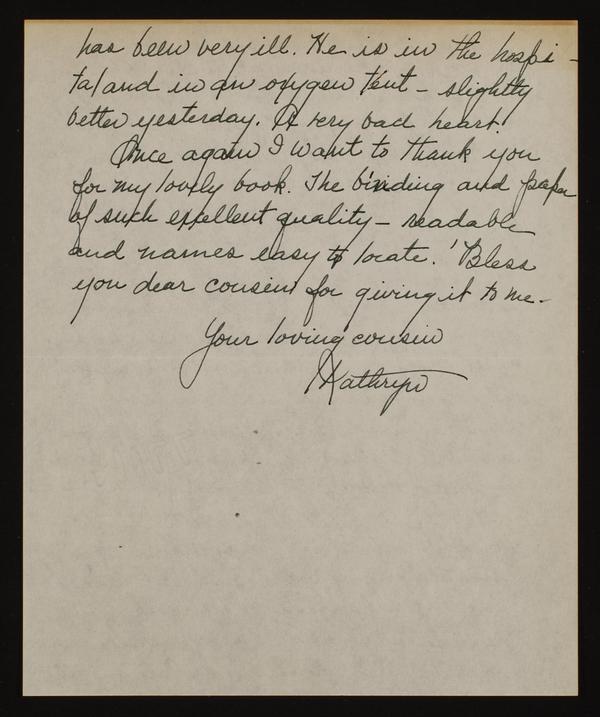 has been very ill. He is in the hospi-
tal and in an oxygen tent - slightly
better yesterday. A very bad heart.
Once again I want to thank you
for my lovely book. The binding and paper
of such excellent quality - readable
and names easy to locate. 'Bless
you dear cousin for giving it to me-
Your loving cousin
Kathryn